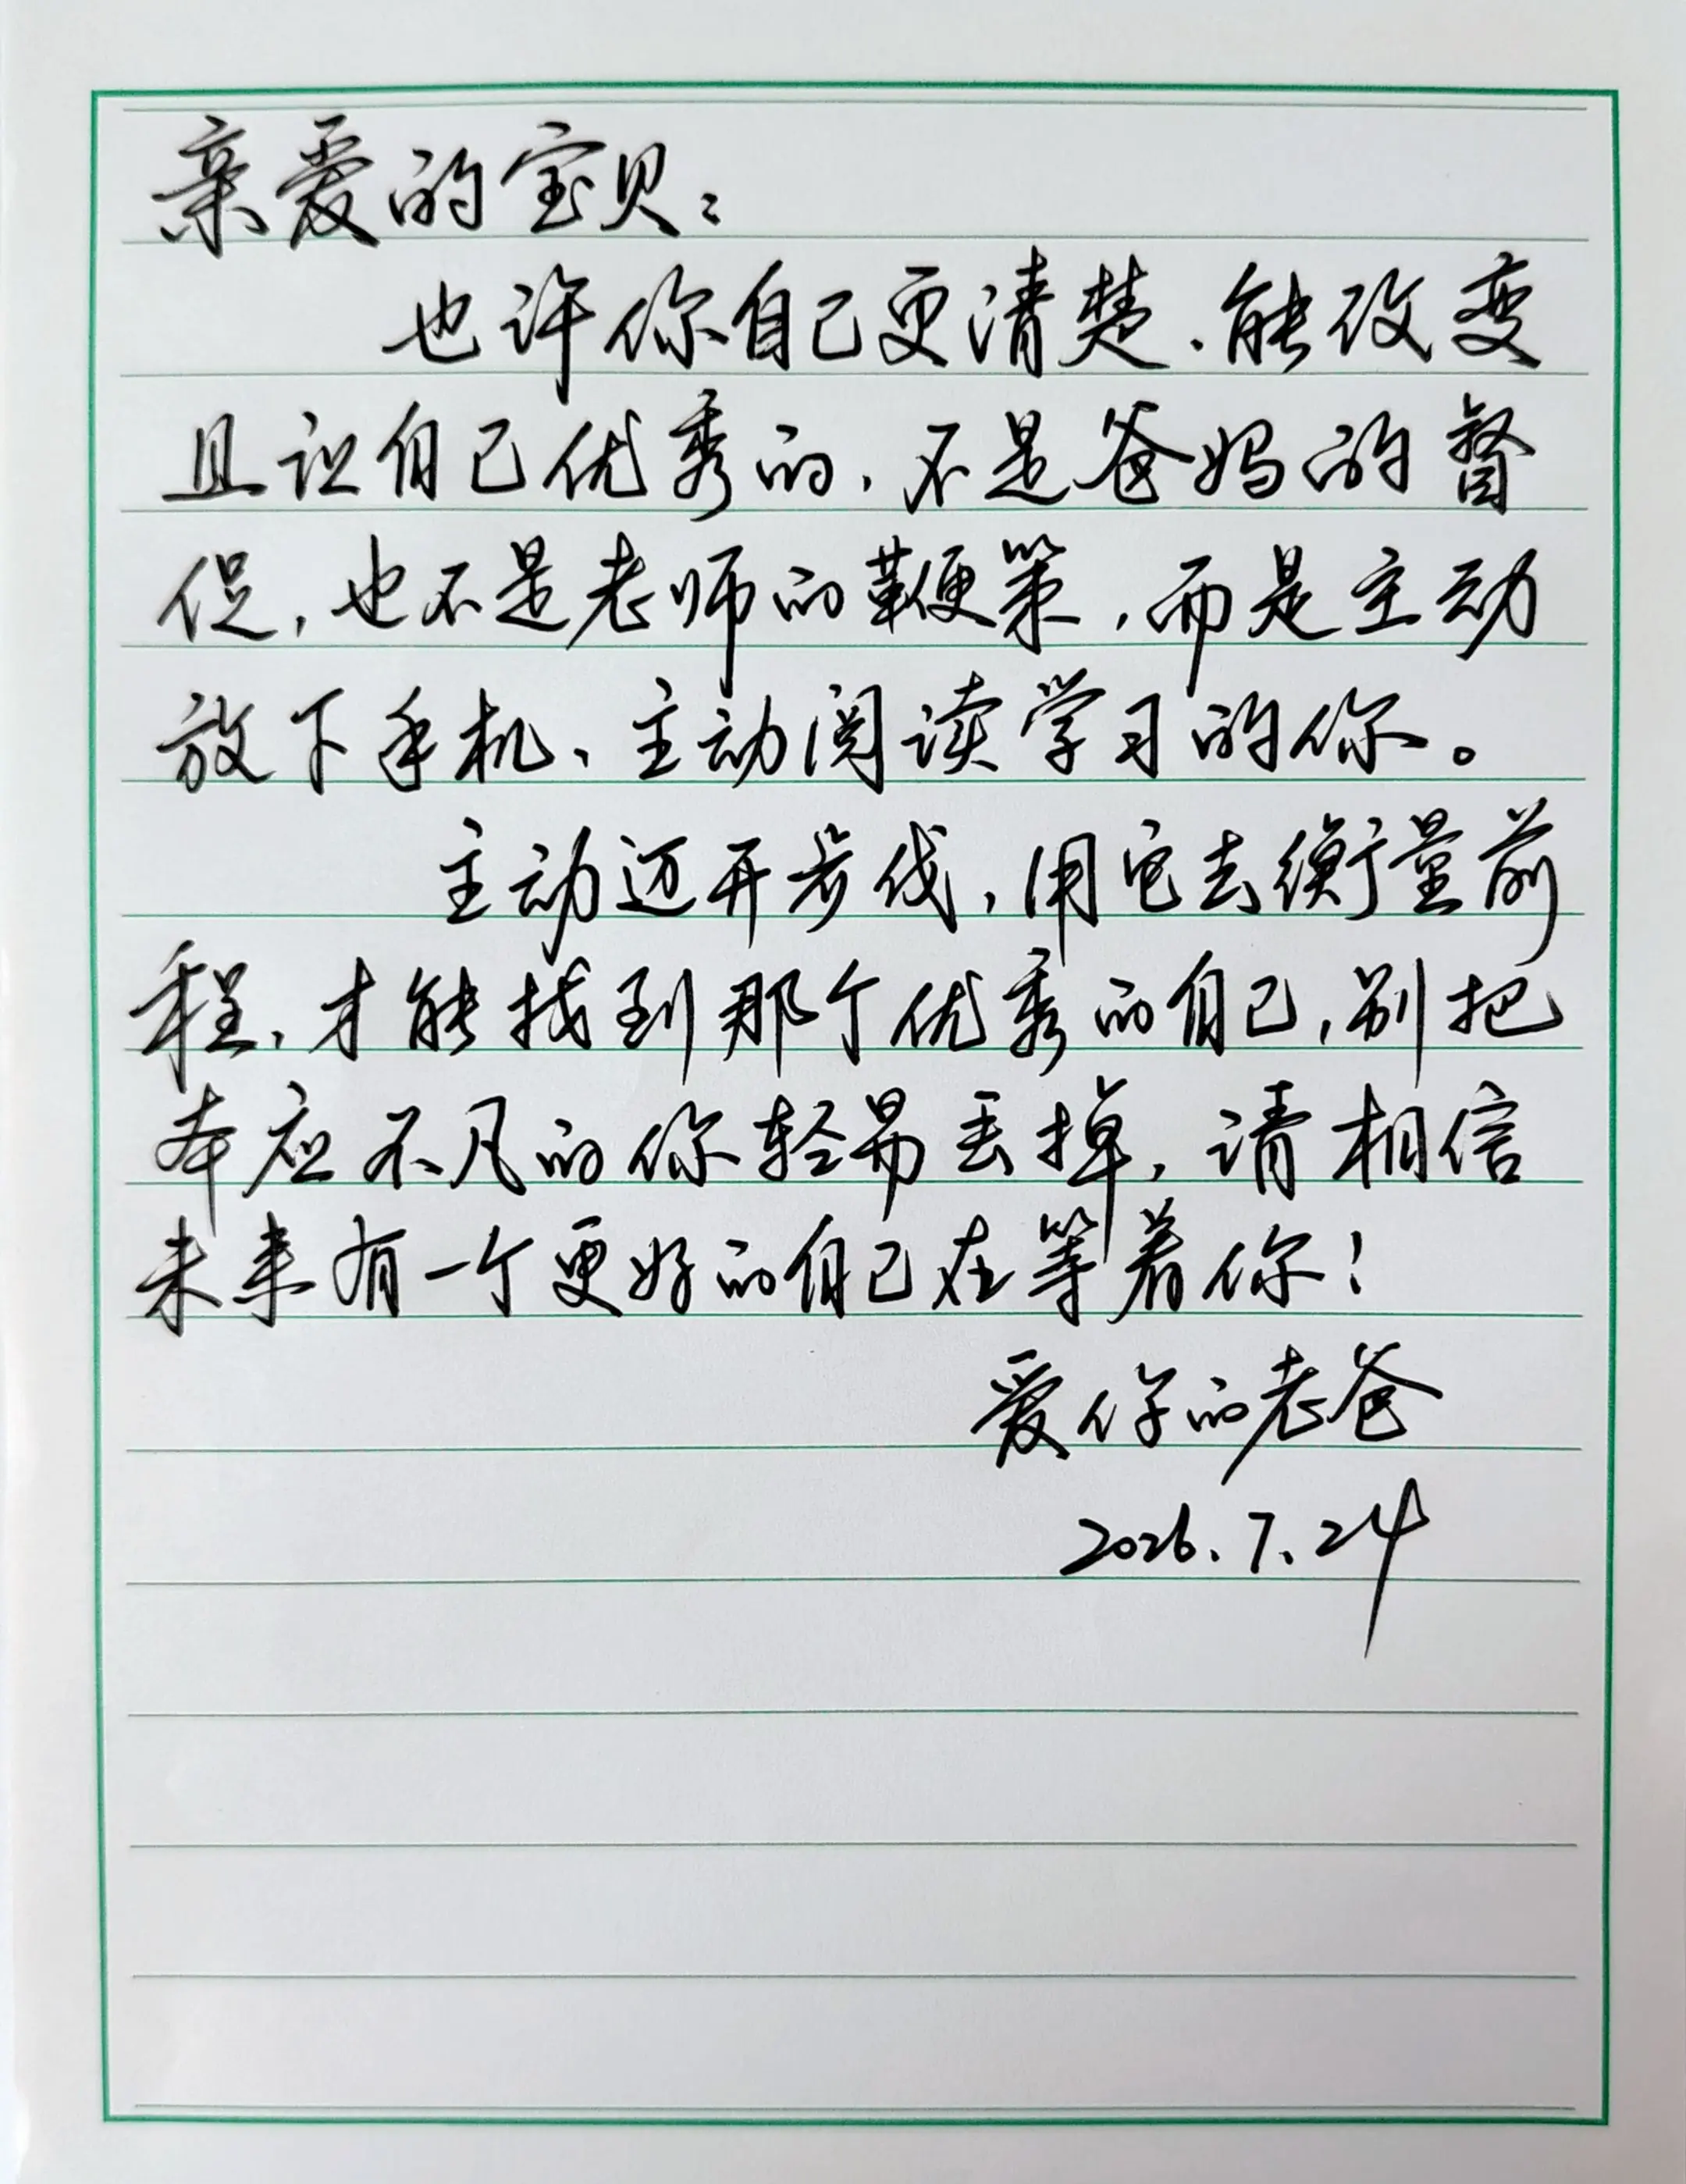 亲爱的宝贝：
也许你自己更清楚、能改变
且让自己优秀的，不是爸妈的督
促，也不是老师的鞭策，而是主动
放下手机、主动阅读学习的你。
主动迈开步伐，用它去衡量前
程、才能找到那个优秀的自己，别把
本应不凡的你轻易丢掉，请相信
未来有一个更好的自己在等着你！
爱你的老爸
2026.7.24